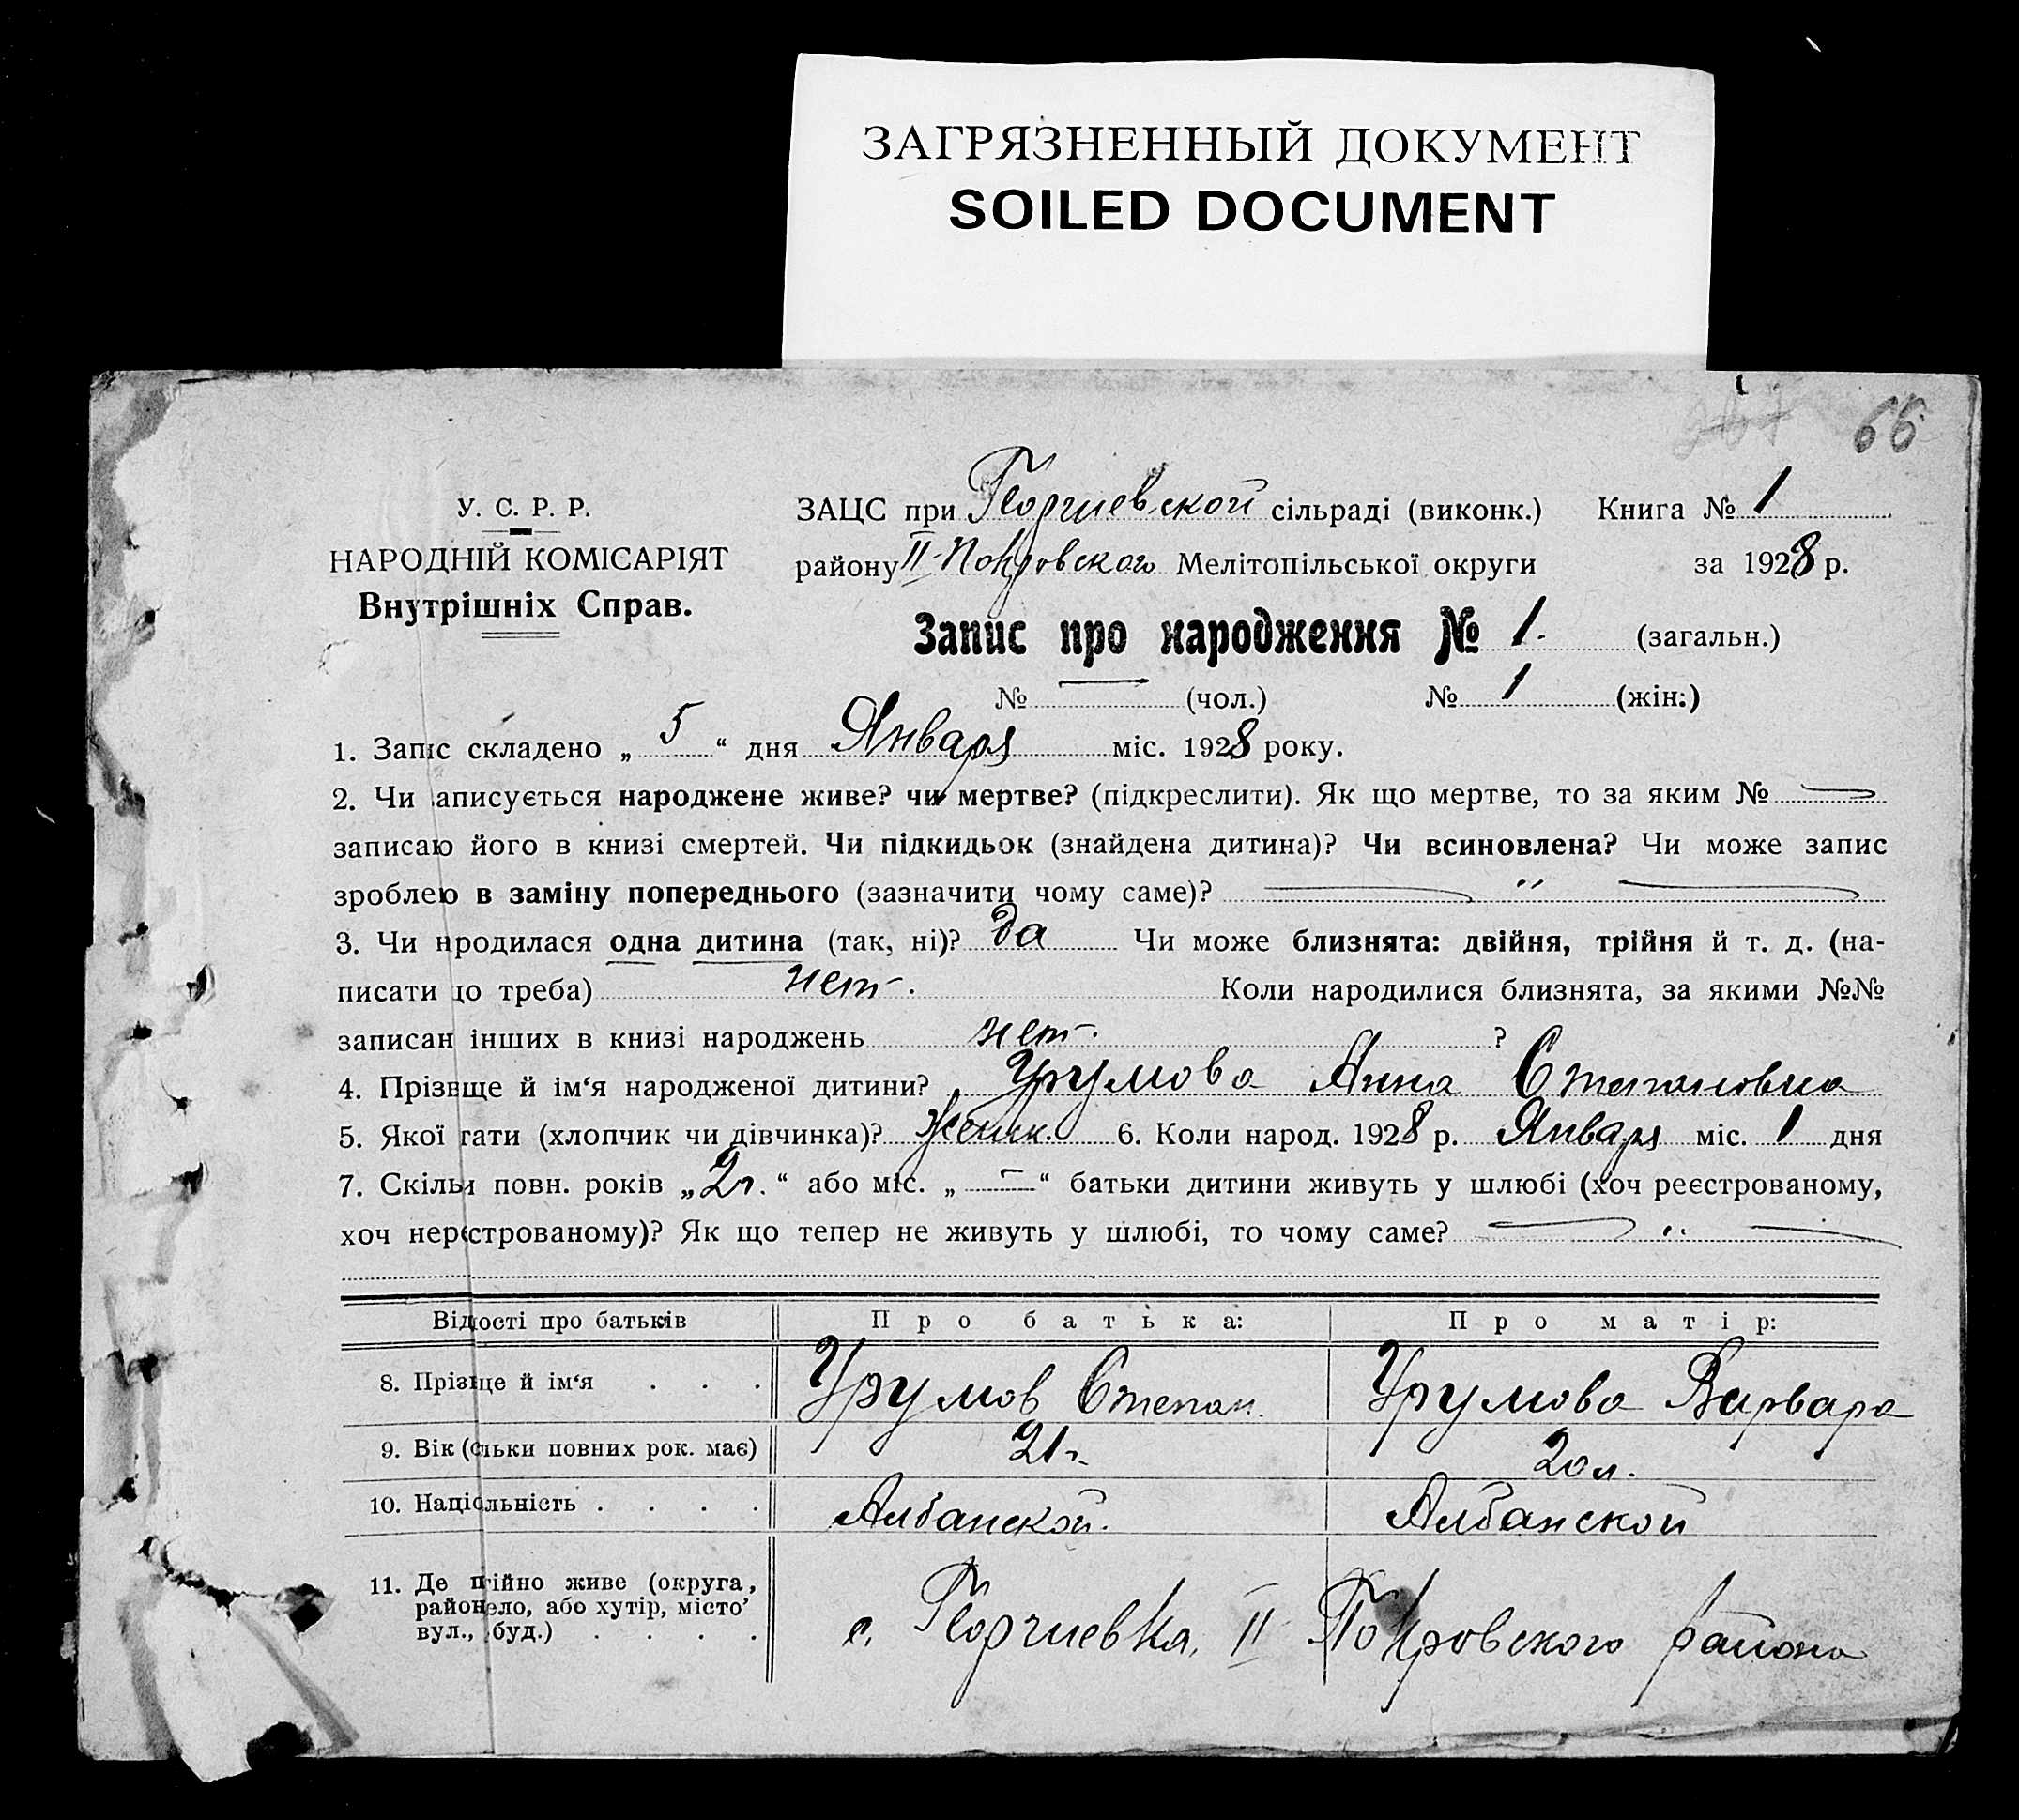 ЗАГРЯЗНЕННЫЙ ДОКУМЕНТ
SOILED DOCUMENT
66
У. С. Р. Р.
НАРОДНІЙ КОМІСАРІЯТ
Внутрішніх Справ.
ЗАЦС при Георгиевской сільраді (виконк.) Книга № 1
району II-Покровского Мелітопільської округи за 1928 р.
Запис про народження № 1. (загальн.)
№ — (чол.) № 1 (жін:)
1. Запіс складено „ 5 “ дня Января міс. 1928 року.
2. Чи аписується народжене живе? чи мертве? (підкреслити). Як що мертве, то за яким № —
записаю його в книзі смертей. Чи підкидьок (знайдена дитина)? Чи всиновлена? Чи може запис
зроблею в заміну попереднього (зазначити чому саме)? — „ —
3. Чи нродилася одна дитина (так, ні)? да Чи може близнята: двійня, трійня й т. д. (на-
писати до треба) нет. Коли народилися близнята, за якими №№
записан інших в книзі народжень нет. ?
4. Прізвще й ім‘я народженої дитини? Урумова Анна Степановна
5. Якої тати (хлопчик чи дівчинка)? Женск. 6. Коли народ. 1928 р. Января міс. 1 дня
7. Скільи повн. років „2г.“ або міс. „—“ батьки дитини живуть у шлюбі (хоч реєстрованому,
хоч нерєстрованому)? Як що тепер не живуть у шлюбі, то чому саме? — „ —
Відості про батьків Про батька: Про матір:
8. Прізще й ім‘я . . . . Урумов Степан. Урумова Варвара
9. Вік (сільки повних рок. має) 21г. 20л.
10. Націольність . . . . Албанской. Албанской
11. Де пійно живе (округа,
район ело, або хутір, місто’
вул., буд.) . . . .
с. Георгиевка, II Покровского района